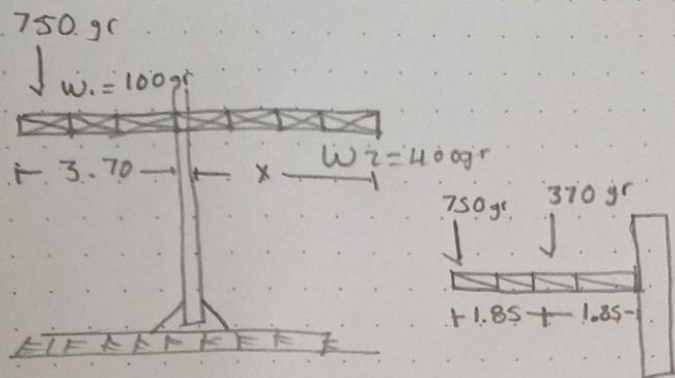 750 gr
W. = 100gr
3.70 x
W2 = 400gr
750gr 370 gr
1.85 1.85